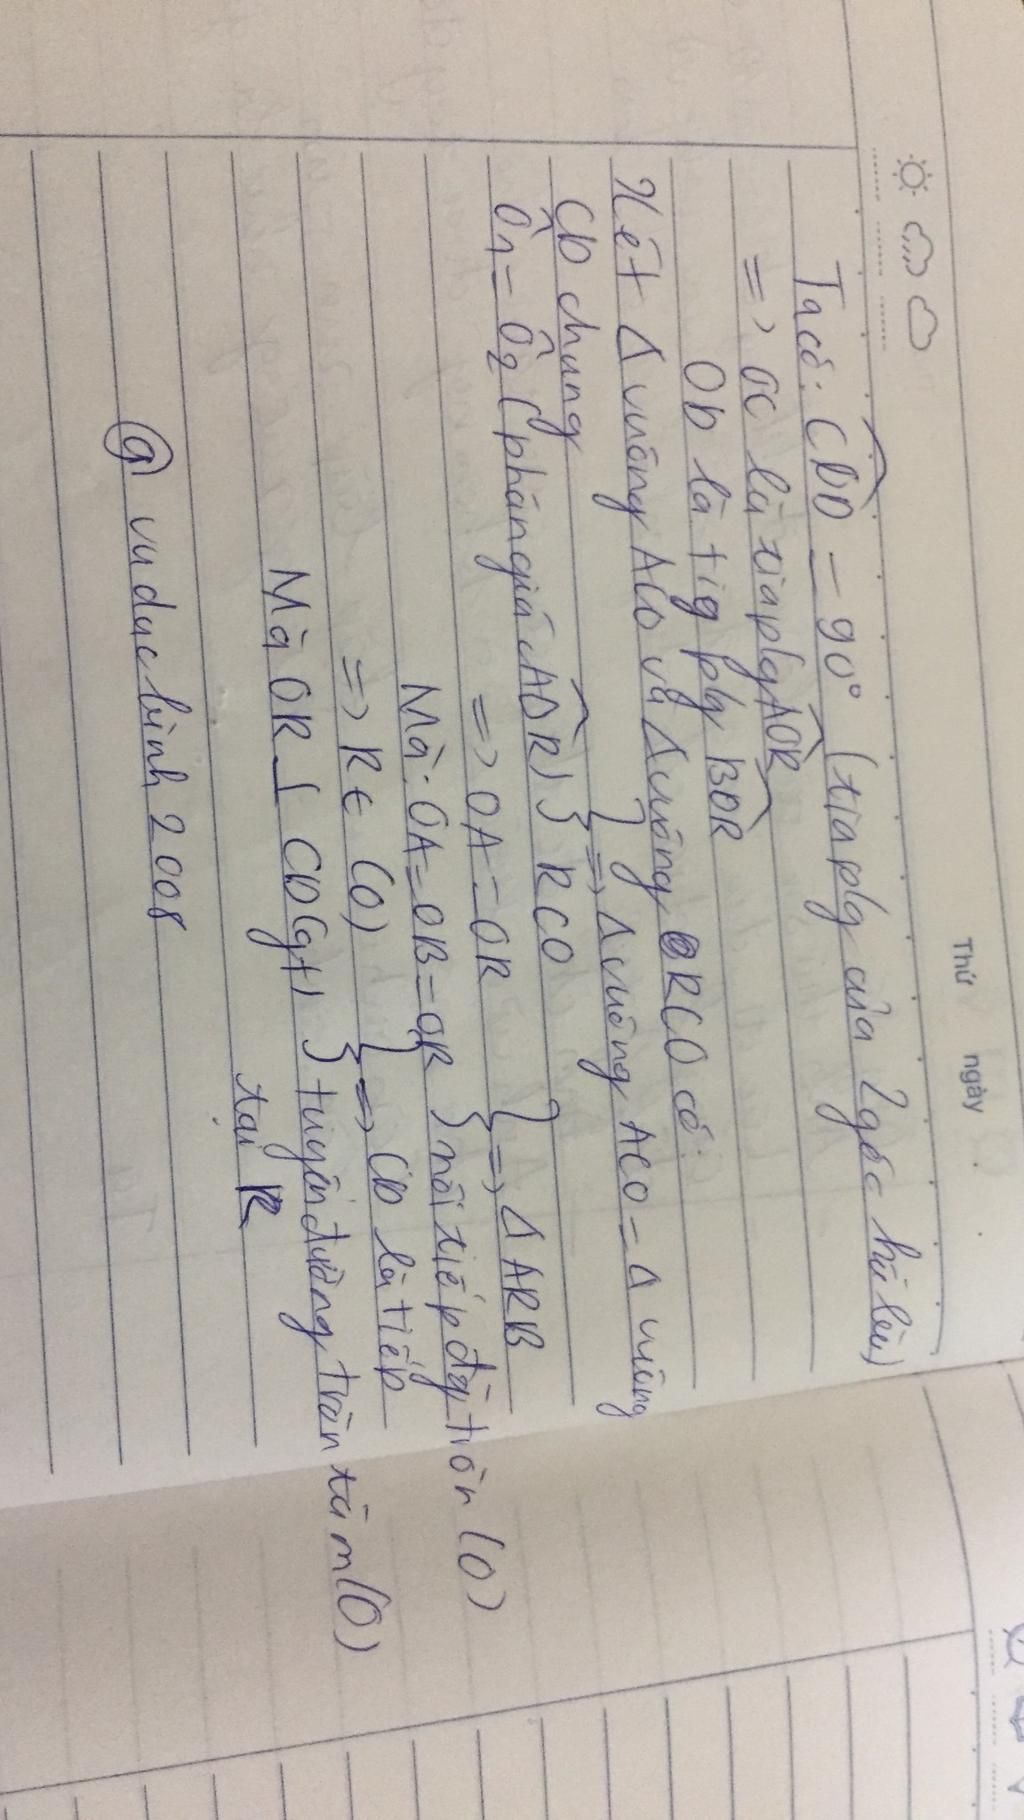 Thứ ngày
Ta có: CDO = 90° (tia plg của 2 góc kề bù)
=> OC là tia plg AOR
OD là tia plg BOR
Xét Δ vuông ACO và Δ vuông RCO có:
CO chung
Ô1 = Ô2 (phân giác AOR) } => Δ vuông ACO = Δ vuông RCO
=> OA = OR
Mà: OA = OB = OR } => Δ ARB nội tiếp đg tròn (O)
=> R ∈ (O)
Mà OR ⊥ CD (gt) } => CD là tiếp tuyến đường tròn tâm (O)
tại R
@ vuducbinh2008